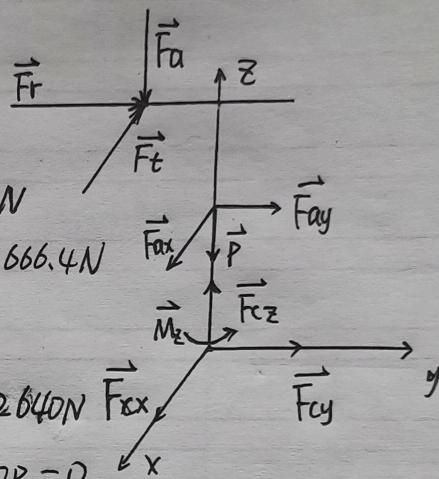 Fa
z
Fr
Ft
N
Fay
Fax
P
666.4N
Fcz
Mz
2640N
Fcx
Fcy
y
x